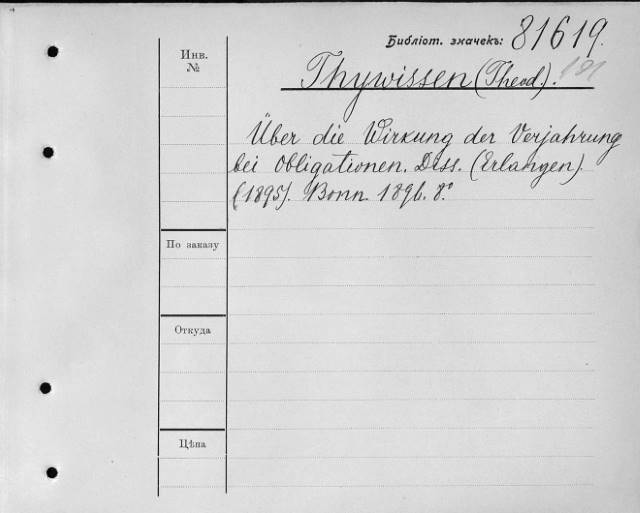 Библіот. значекъ: 81619.
Инв. №
Thywissen (Theod.).
Über die Wirkung der Verjahrung
bei Obligationen. Diss. (Erlangen).
(1895). Bonn 1896. 8º
По заказу
Откуда
Цѣна